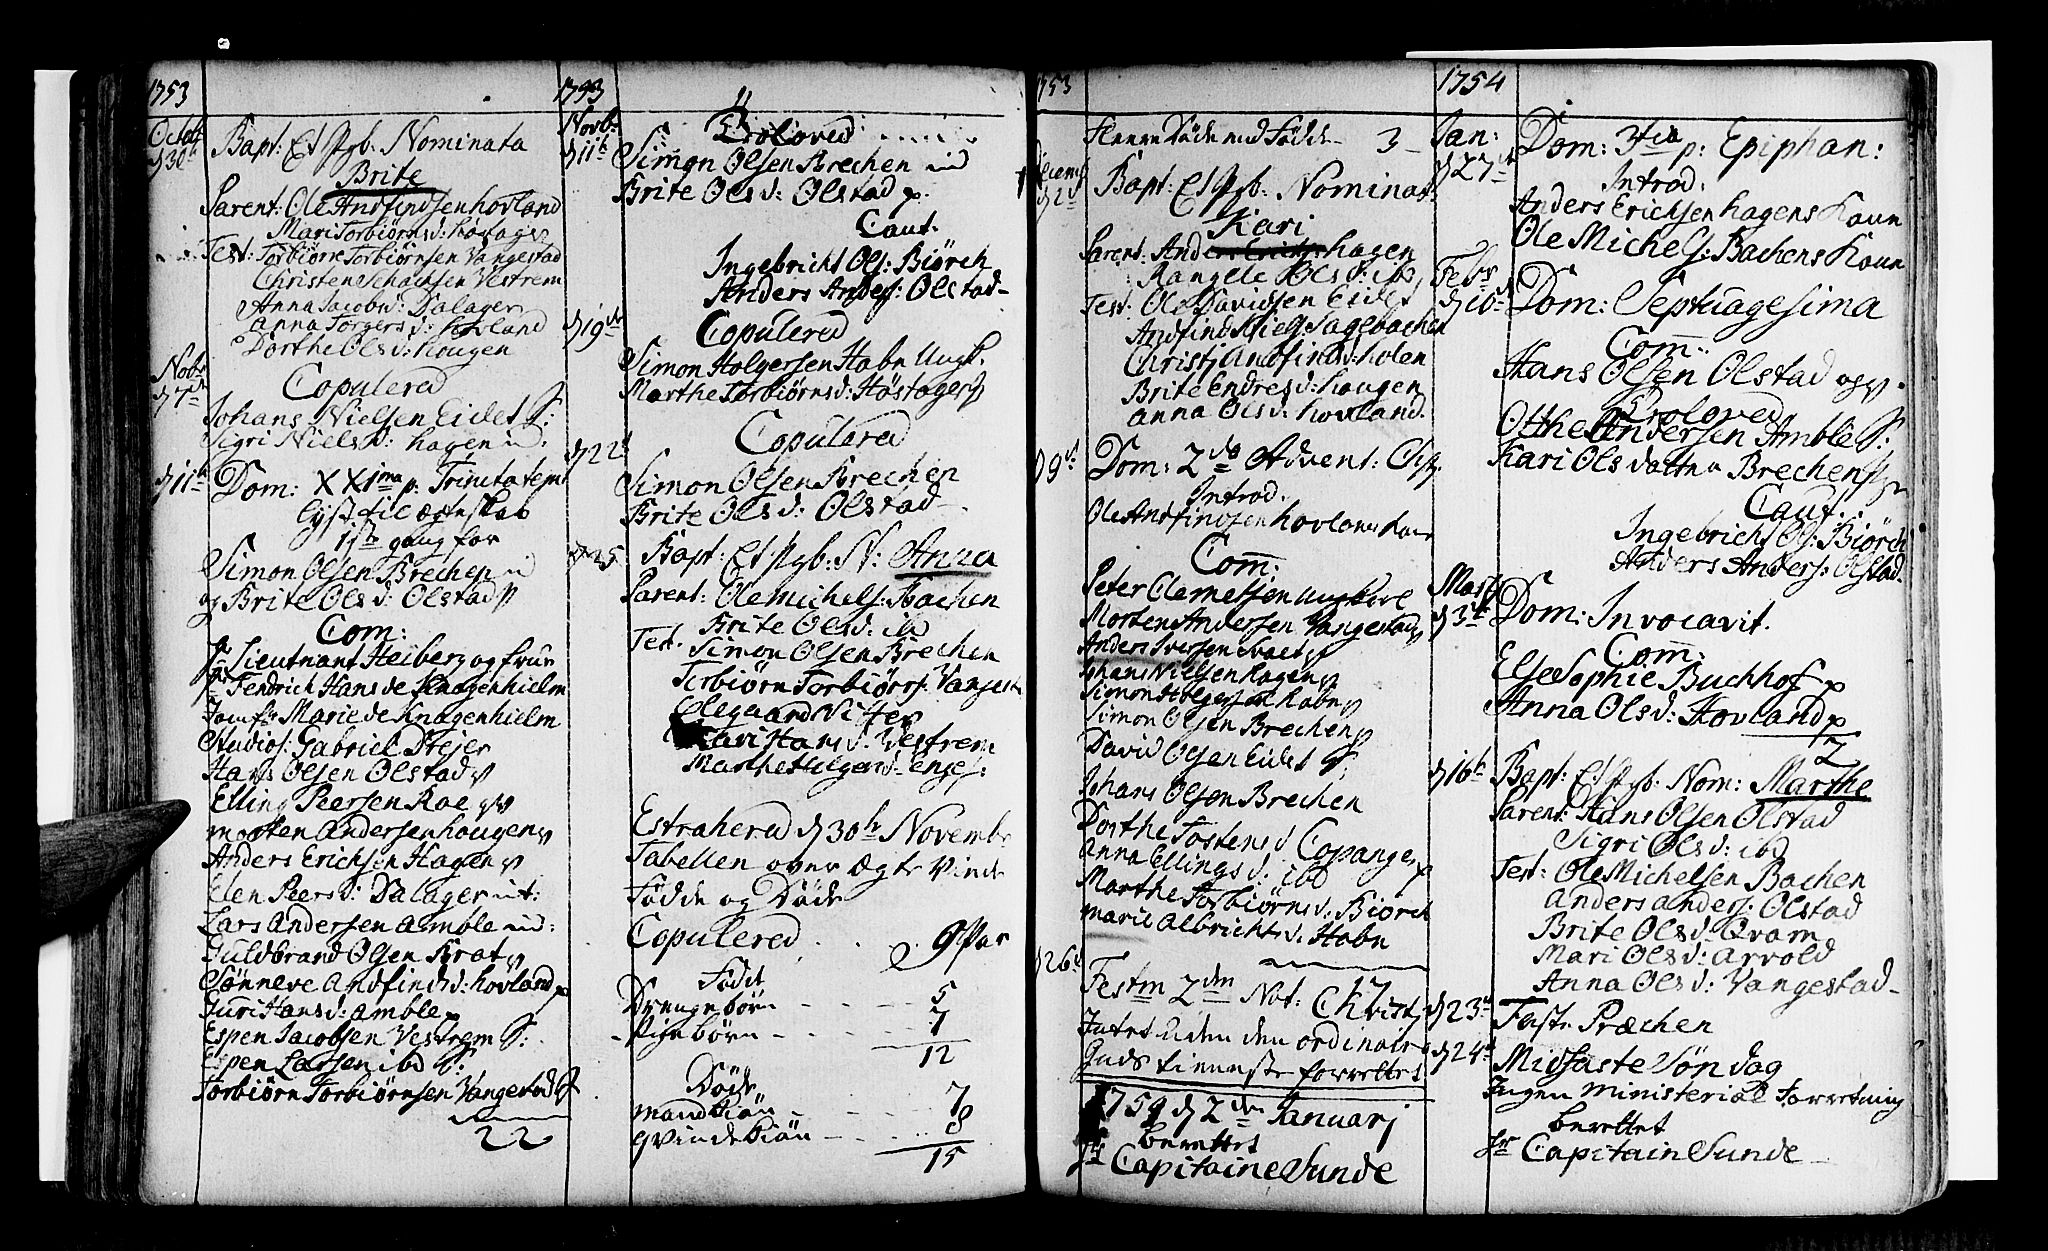 1753
Octob
d 30
Bapt: Et Pgb: Nominata
Brite
Parent: Ole Andfindsen hovland
Mari Torbiørnsd:
Test: Torbiørn Torbiørnsen Vangestad
Christen Vestrem
Anna Jacobsd: Dalager
Anna Torgersd: hovland
Dorthe Olsd: hougen
Nobr
d 7de
Copulered
Johans Nielsen Eidet S:
Sigri Nielsd: hagen
d 11te
Dom: XXIma p: Trinitatem
lyst til ægteskab
1ste gang for
Simon Olsen Brechen
og Brite Olsd: Olstad
Com:
Hr Lieutnant Heiberg og frue
Hr Fendrich Hans de Knagenhielm
Jomfr Marie de Knagenhielm
Studios: Gabriel Drejer
Hans Olsen Olstad
Elling Peersen Roe
morten andersen hougen
Anders Erichsen Hagen
Elen Peersd: Dalager
Lars Andersen Amble
Guldbrand Olsen
Sønneve Andfindsd: hovland
Turi Hansd: amble
Espen Jacobsen Vestrem S:
Espen Larsen ibd S:
Torbiørn Torbiørnsen Vangestad
22
1753
Novb:
d 11te
Trolovet
Simon Olsen Brechen
Brite Olsd: Olstad p.
Caut:
Ingebricht Ols: Biørch
Anders Anders: Olstad
d 19de
Copulered
Simon Holgersen Habn Ungk.
Marthe Torbiørnsd: Høstager
d 22d
Copulered
Simon Olsen Brechen
Brite Olsd: Olstad
d 25
Bapt: Et Pgb: N: Anna
Parent: Ole Michels: Bachen
Brite Olsd: ibd
Test: Simon Olsen Brechen
Torbiørn Torbiørns: Vangest
Olegaard
Kari Hansd: Vestrem
Marthe Helgesd:
Extrahered d 30te Novembr
Tabellen over Ægte Viede
Fødde og Døde
Copulered . . 9 Par
Født
Drengebørn - - - 5
Pigebørn - - - 7
12
Døde
mandkiøn - - - 7
qvindekiøn - - - 8
15
1753
Fleere Døde end Fødde 3
Decemb
d 2d
Bapt: Et Pgb: Nominat:
Kari
Parent: Anders Erichs: hagen
Rangele Olsd: ibd
Test: Ole Davidsen Eidet
Andfind Niels: Sagebachen
Christj Andfindsd: holen
Brite Endresd: hougen
Anna Olsd: hovland.
d 9d
Dom: 2da Advent: Chr:
Introd.
Ole Andfindsen hovlands kone
Com:
Peter Clemetsen ungkarl
Morten Andersen Vangestad
Anders Iversen
Johans Nielsen Hagen
Simon Holgersen Habn
Simon Olsen Brechen
David Olsen Eidet S:
Johans Olsen Brechen
Dorthe Tostensd Copanger
Anna Ellingsd: ibd
Marthe Torbiørnsd: Biørch
Marie Albrichtsd: Habn
d 26d
Festm 2dm Nat: Christj
Intet uden den ordinaire
Guds tieneste forrettet
1754 d 2den Januarj
berettet
Hr Capitaine Sunde
1754
Jan:
d 27de
Dom: 3tia p: Epiphan:
Introd.
Anders Erichsen hagens kone
Ole Michels: Bachens kone
Febr
d 10de
Dom: Septuagesima
Com:
Hans Olsen Olstad
Trolovet
Otthe Andersen Amble S:
Kari Olsdatter Brechen
Caut:
Ingebricht Ols: Biørch
Anders Anders: Olstad
Mart
d 3de
Dom: Invocavit.
Com:
Else Sophie Buchhof p
Anna Olsd: Hovland p
2
d 16te
Bapt: Et Pgb: Nom: Marthe
Parent: Hans Olsen Olstad
Sigri Olsd: ibd
Test: Ole Michelsen Bachen
Anders Anders: Olstad
Brite Olsd: Qvam
Mari Olsd: Arvold
Anna Olsd: Vangestad
d 23d
Faste Præchen
d 24d
Midfaste Søndag
Ingen Ministerial Forretning
berettet
Hr Capitain Sunde